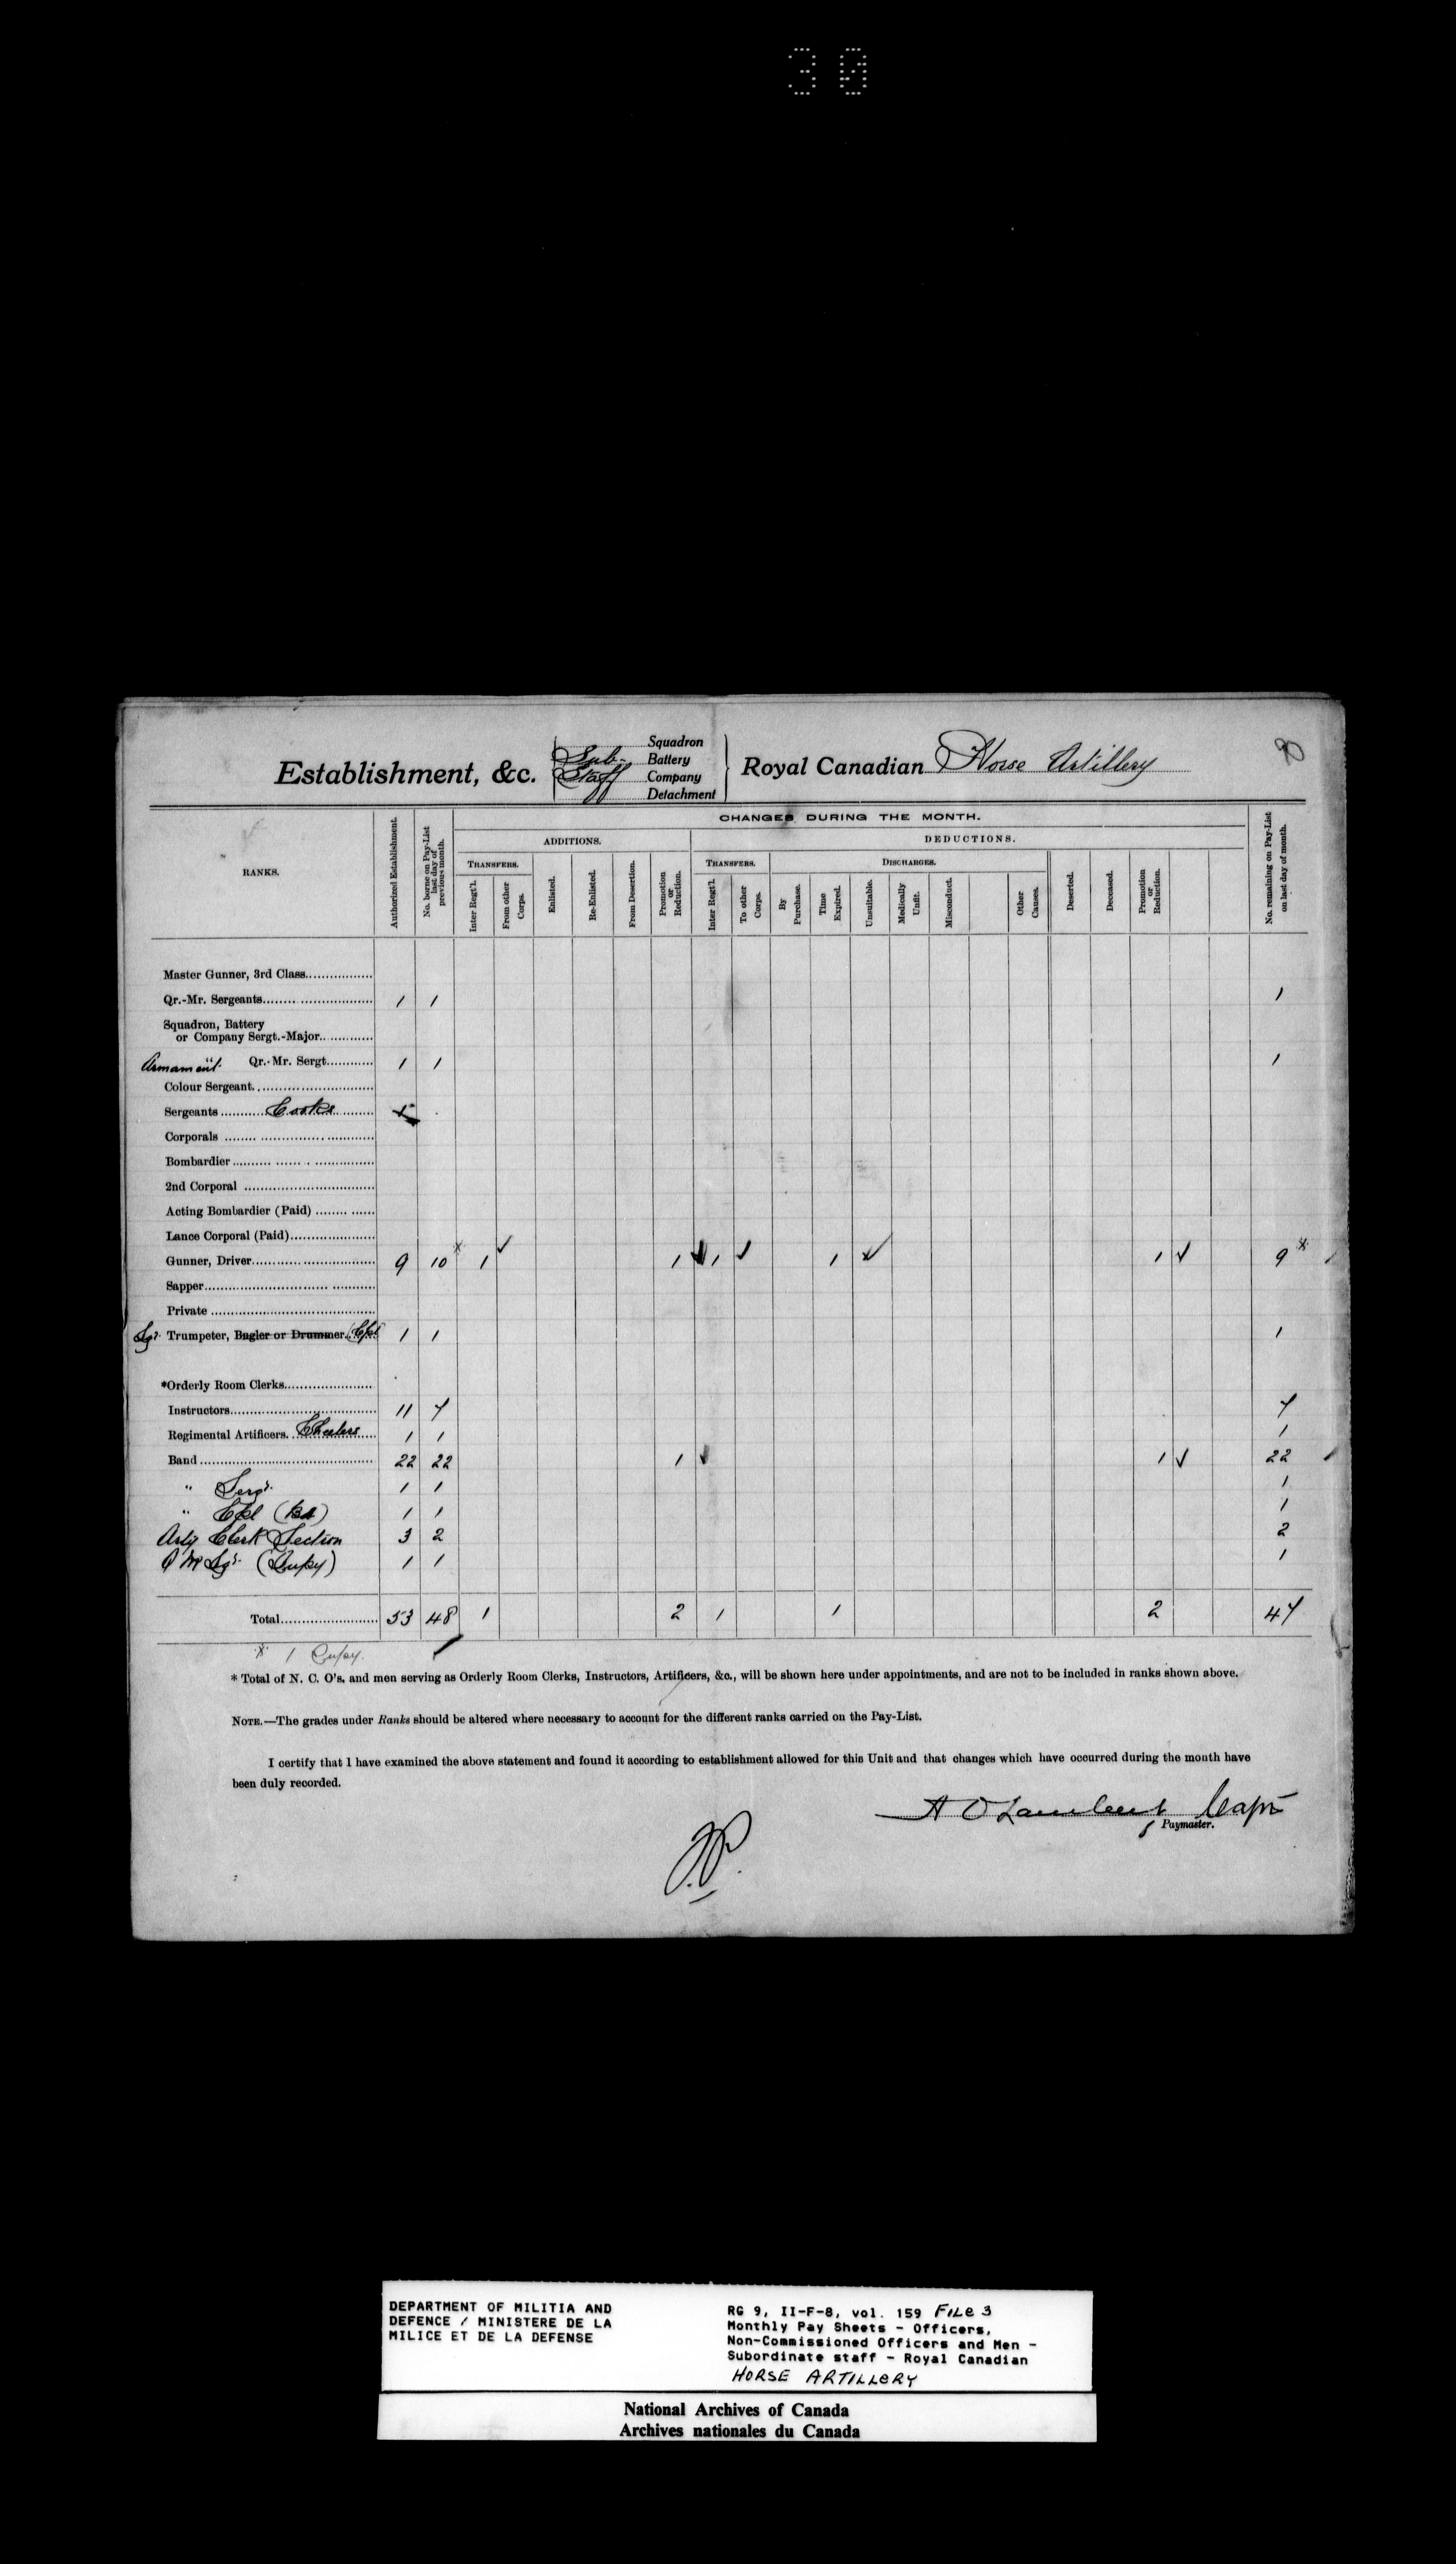 30
Establishment, &c.
Sub-
Staff
Squadron
Battery
Company
Detachment
Royal Canadian Horse Artillery
RANKS.
Authorized Establishment.
No. borne on Pay-List last day of previous month.
CHANGES DURING THE MONTH.
ADDITIONS.
DEDUCTIONS.
TRANSFERS.
Inter Reg't'l.
From other Corps.
Enlisted.
Re-Enlisted.
From Desertion.
Promotion or Reduction.
TRANSFERS.
Inter Regt'l.
To other Corps.
DISCHARGES.
By Purchase.
Time Expired.
Unsuitable.
Medically Unfit.
Misconduct.
Other Causes.
Deserted.
Deceased.
Promotion or Reduction.
No. remaining on Pay-List on last day of month.
Master Gunner, 3rd Class
Qr.-Mr. Sergeants 1 1 1
Squadron, Battery
or Company Sergt.-Major
Armament " Qr.-Mr. Sergt. 1 1 1
Colour Sergeant
Sergeants Cooks
Corporals
Bombardier
2nd Corporal
Acting Bombardier (Paid)
Lance Corporal (Paid)
Gunner, Driver 9 10 x 1 ✓ 1 ✓ 1 ✓ 1 ✓ 1 ✓ 9 x
Sapper
Private
Sgr. Trumpeter, Bugler or Drummer 1 1 1
*Orderly Room Clerks
Instructors 11 7 7
Regimental Artificers. 1 1 1
Band 22 22 1 ✓ 1 ✓ 22
" Sergr. 1 1 1
" Cpl 1 1 1
Arty Clerk Section 3 2 2
Q M Sgr. (Supy) 1 1 1
Total 53 48 1 2 1 1 2 47
x 1 Supy.
* Total of N. C. O's. and men serving as Orderly Room Clerks, Instructors, Artificers, &c., will be shown here under appointments, and are not to be included in ranks shown above.
NOTE.—The grades under Ranks should be altered where necessary to account for the different ranks carried on the Pay-List.
I certify that I have examined the above statement and found it according to establishment allowed for this Unit and that changes which have occurred during the month have
been duly recorded.
A O Lambert Capt
Paymaster.
DEPARTMENT OF MILITIA AND
DEFENCE / MINISTERE DE LA
MILICE ET DE LA DEFENSE
RG 9, II-F-8, vol. 159 FILE 3
Monthly Pay Sheets - Officers,
Non-Commissioned Officers and Men -
Subordinate staff - Royal Canadian
HORSE ARTILLERY
National Archives of Canada
Archives nationales du Canada